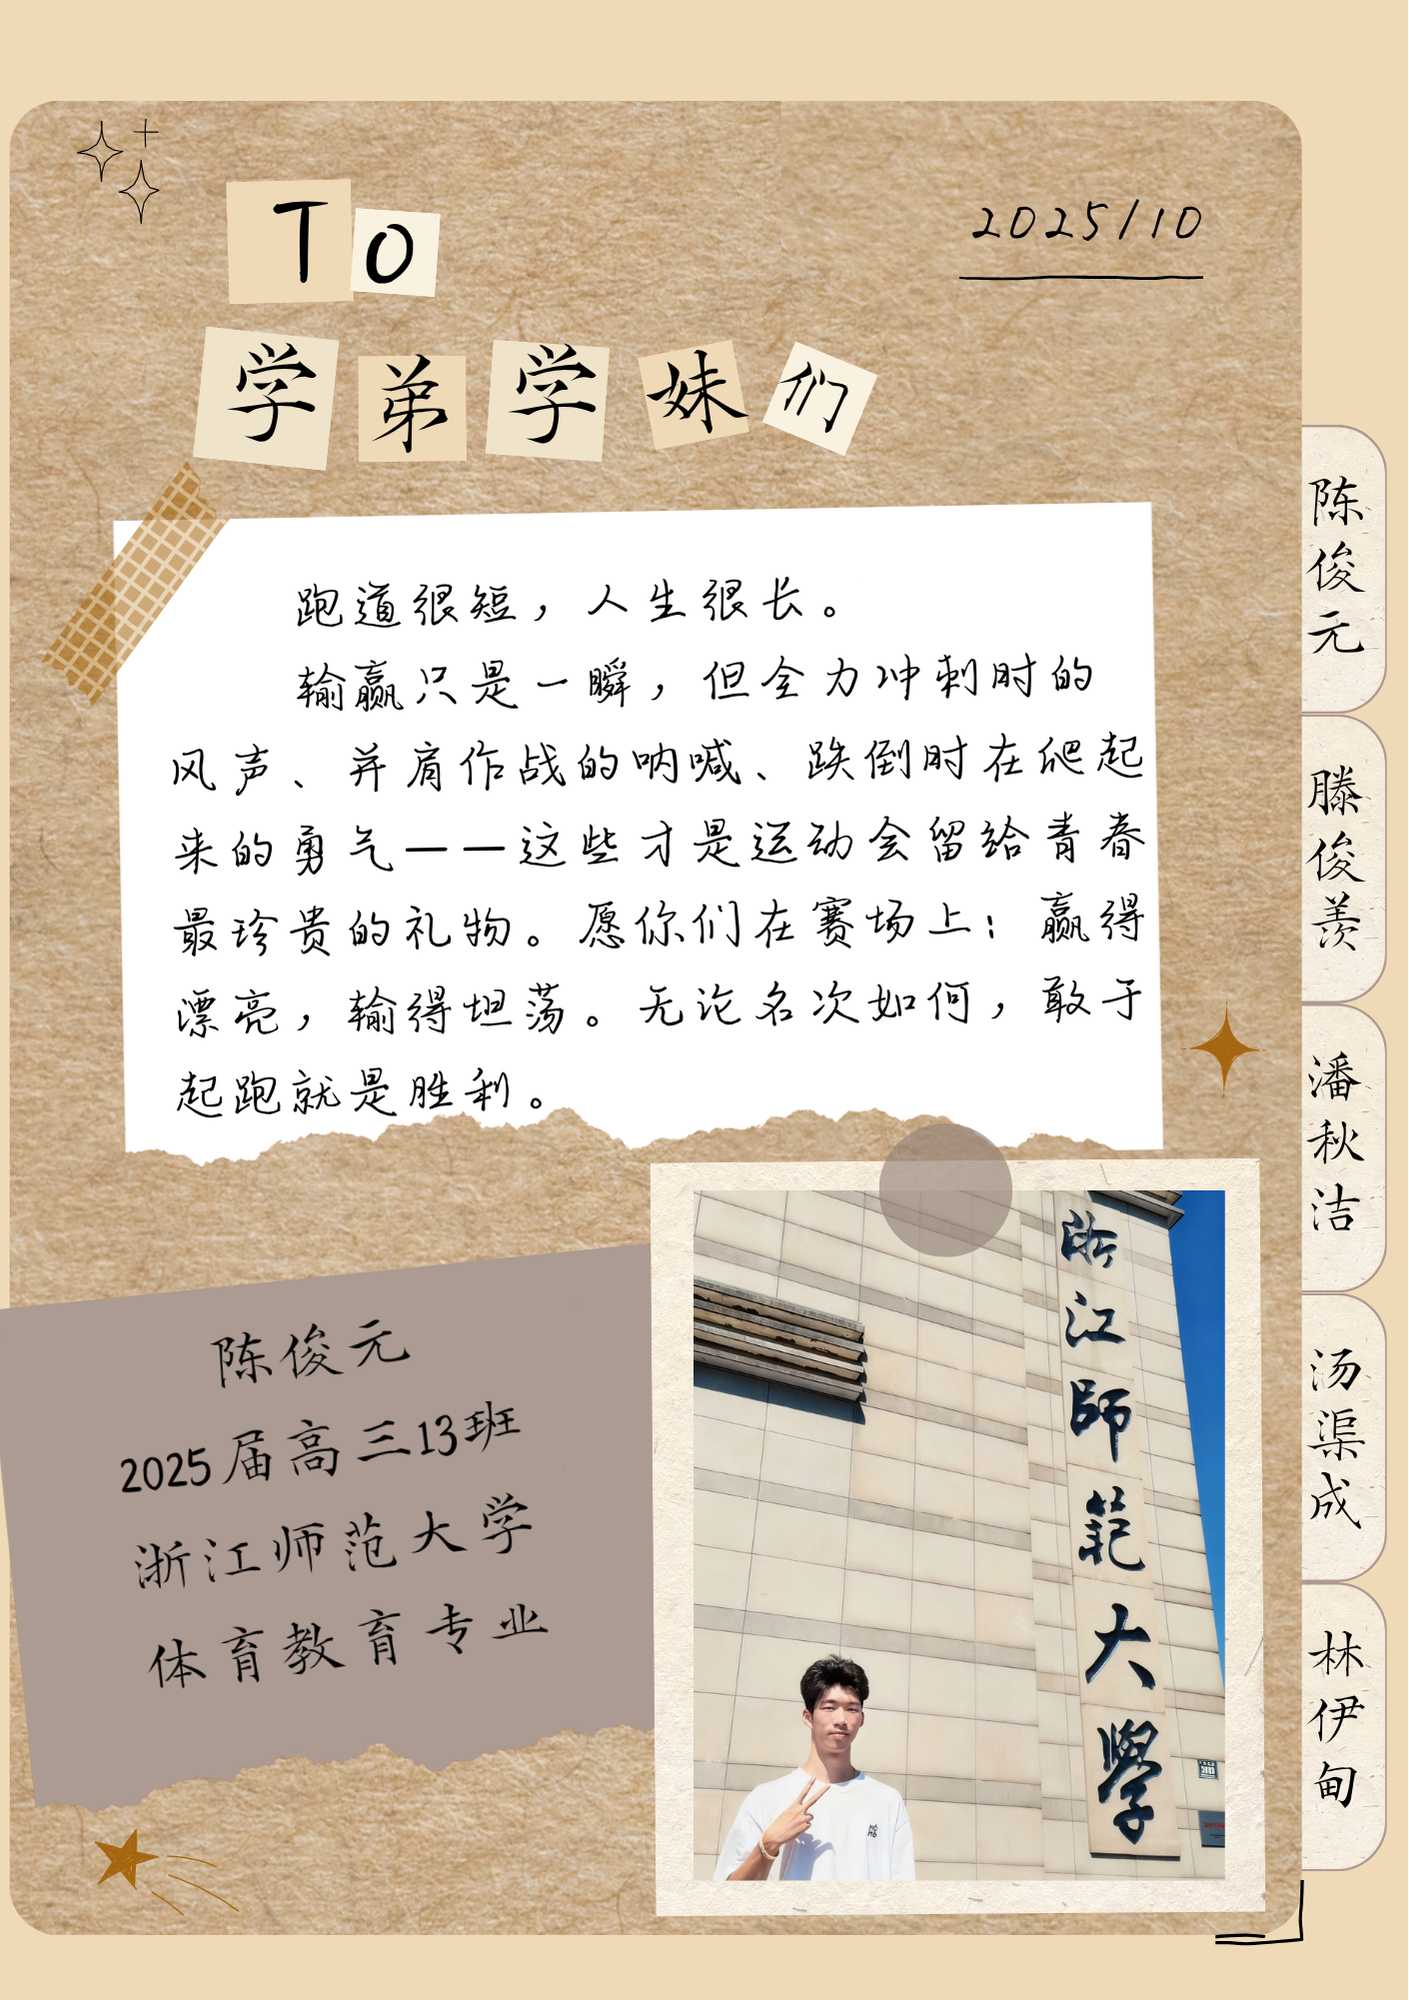 TO
2025/10
学弟学妹们
跑道很短，人生很长。
输赢只是一瞬，但全力冲刺时的
风声、并肩作战的呐喊、跌倒时在爬起
来的勇气——这些才是运动会留给青春
最珍贵的礼物。愿你们在赛场上：赢得
漂亮，输得坦荡。无论名次如何，敢于
起跑就是胜利。
陈俊元
2025届高三13班
浙江师范大学
体育教育专业
浙江師範大學
陈俊元
滕俊羡
潘秋洁
汤渠成
林伊甸